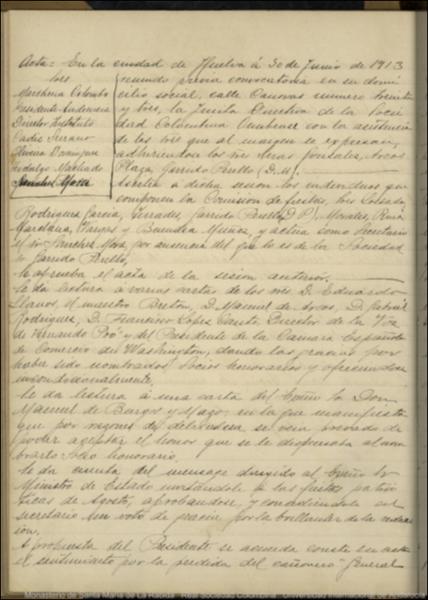 Acta: En la ciudad de Huelva á 30 de Junio de 1913
Sres
Marchena Colombo
Presidente Audiencia
Director Instituto
Cádiz Serrano
Oliveira Domínguez
Hidalgo Machado
Sánchez Mora
reunida previa convocatoria en su domi
cilio social, calle Canovas numero treinta
y tres, la Junta Directiva de la Socie
dad Colombina Onubense con la asistencia
de los Sres que al margen se expresan,
adhiriendose los Sres Terradez González, Arcos
Plaza, Garrido Perello (D. M).
Asiste a dicha sesion los individuos que
componen la Comision de fiestas, Sres Calzada,
Rodriguez Garcia, Terrades, Garrido Perello (D. P) Morales, Ruiz
Marchena, Vargas y Buendia Muñoz, y actua como secretario
el Sr Sanchez Mora, por ausencia del que lo es de la Sociedad
Sr Garrido Perello.
Se aprueba el acta de la sesion anterior.
Se da lectura a varias cartas de los Sres D. Eduardo
Llanos, el maestro Breton, D. Manuel de D. Gabriel
Rodriguez, D. Francisco Lopez Canto, Director de la Voz
de Fernando Póo y del Presidente de la Camara Española
de Comercio de Washington, dando las gracias por
haber sido nombrados socios honorarios y ofreciendose
incondicionalmente.
Se da lectura á una carta del Excmo Sr Don
Manuel de Burgos y Mazo, en la que manifiesta
que por razones de delicadeza se veia privado de
poder aceptar el honor que se le dispensaba al nom
brarlo Socio honorario.
Se da cuenta del mensage dirigido al Excmo Sr
Ministro de Estado invitándole a las fiestas patrió
ticas de Agosto, aprobandose, y concediendole al
secretario un voto de gracias por la brillantez de la redac
ión.
A propuesta del Presidente se acuerda conste en acta
el sentimiento por la perdida del cañonero General